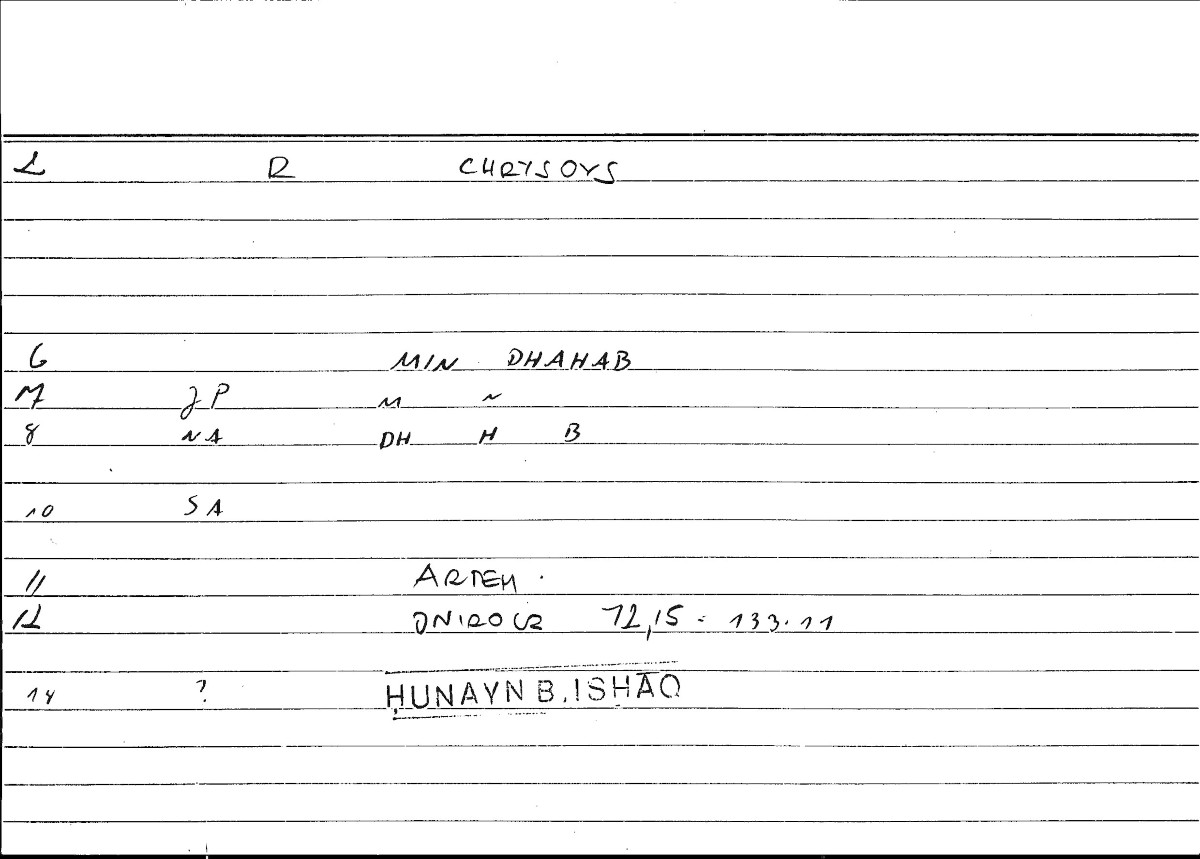 2 R CHRYSOYS
6 MIN DHAHAB
7 JP M N
8 NA DH H B
10 SA
11 ARTEM.
12 ONIROCR 72,15 = 133.11
14 ? ḤUNAYN B. ISḤĀQ